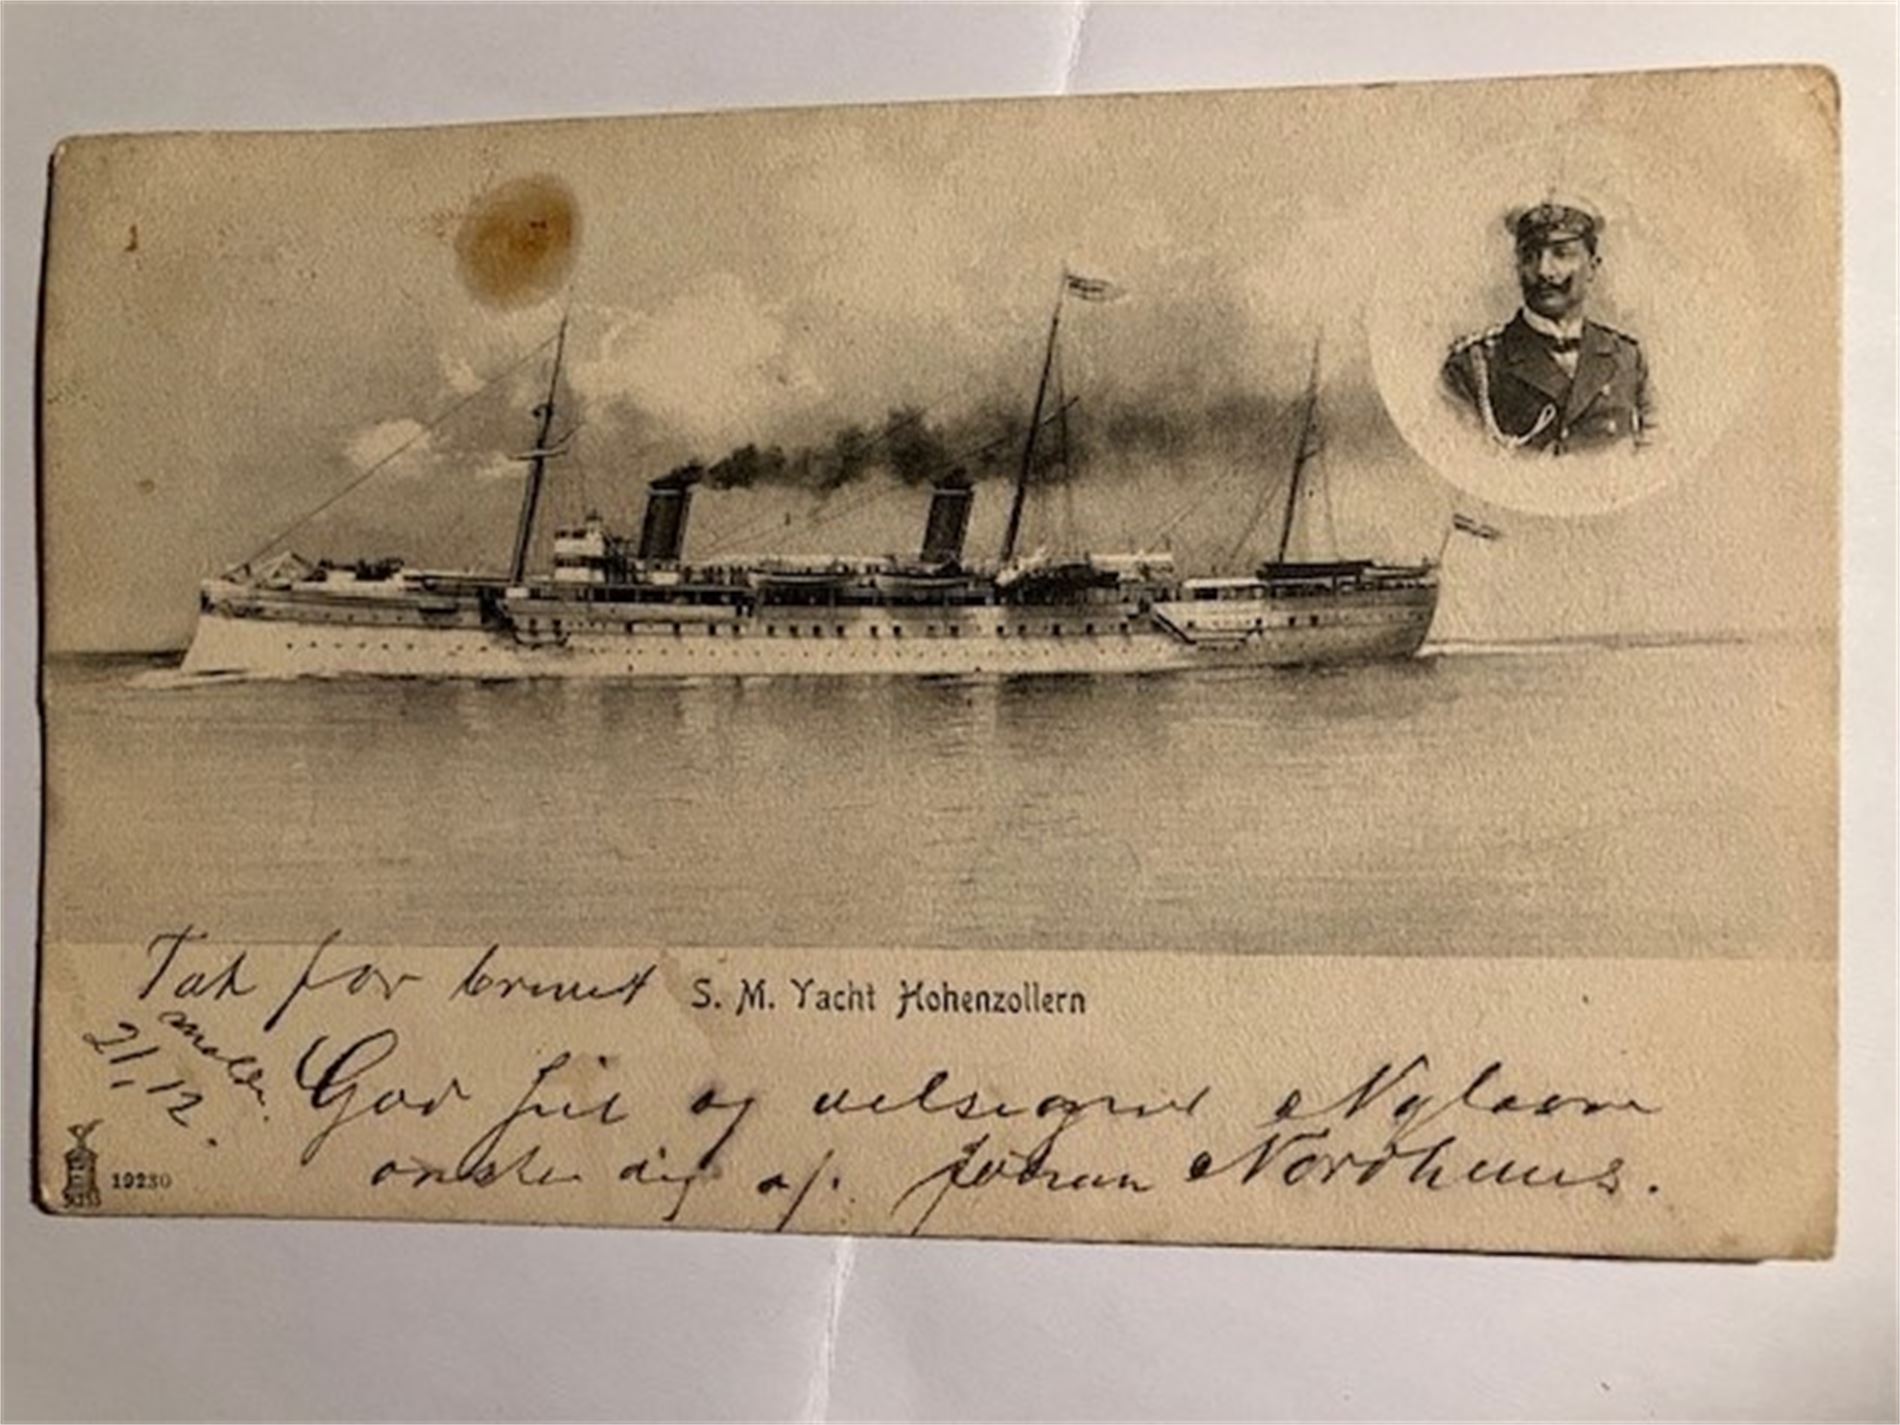 Tak for brevet
S. M. Yacht Hohenzollern
21-12.
God Jul og velsignet Nylaar
ønsker dig af. Johan Nordhuus.
19230